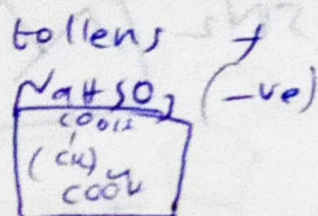 tollens +
NaHSO3 (-ve)
COOH
(
COOH